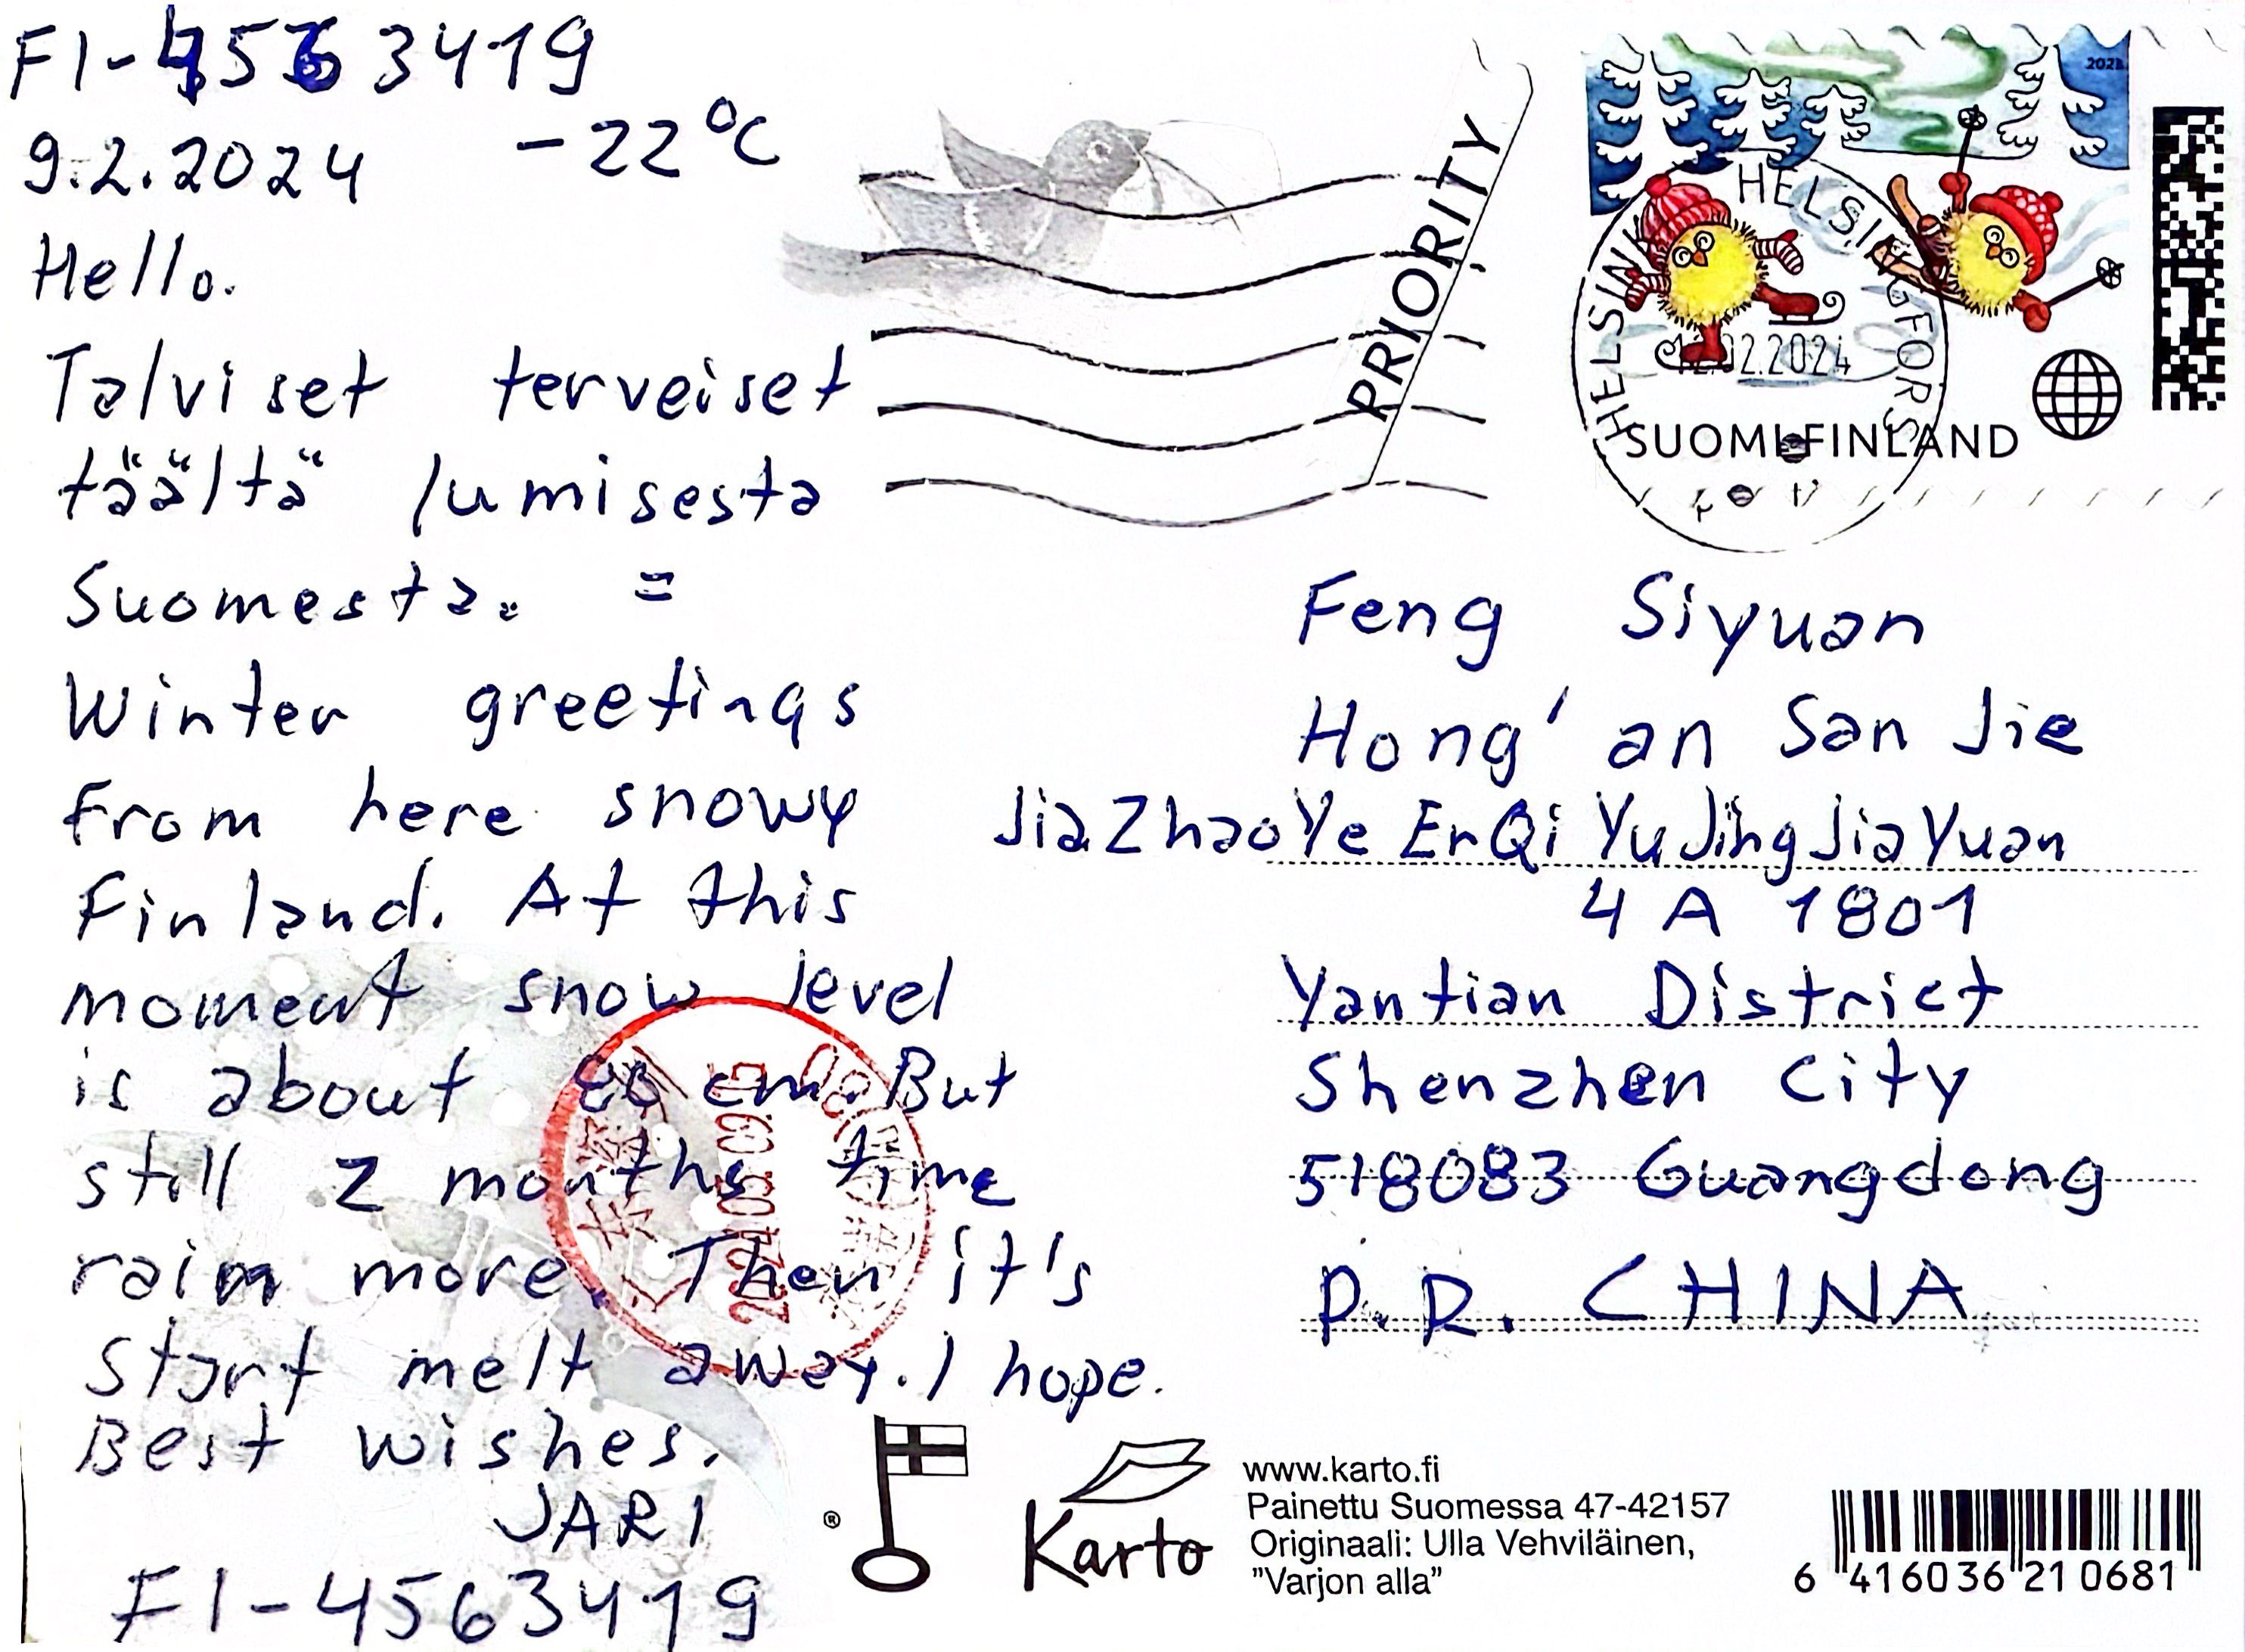 FI-4563419
9.2.2024 -22°C
Hello.
Talviset terveiset
täältä lumisesta
Suomesta. =
Winter greetings
from here snowy
Finland. At this
moment snow level
is about cm. But
still 2 months time
raim more. Then it's
start melt away. I hope.
Best wishes.
JARI
FI-4563419
PRIORITY
HELSINKI HELSINGFORS
12.02.2024
SUOMI FINLAND
Feng Siyuan
Hong' an San Jie
JiaZhaoYe ErQi YuJingJiaYuan
4 A 1801
Yantian District
Shenzhen City
518083 Guangdong
P.R. CHINA
®
Karto
www.karto.fi
Painettu Suomessa 47-42157
Originaali: Ulla Vehviläinen,
"Varjon alla"
6 416036 210681